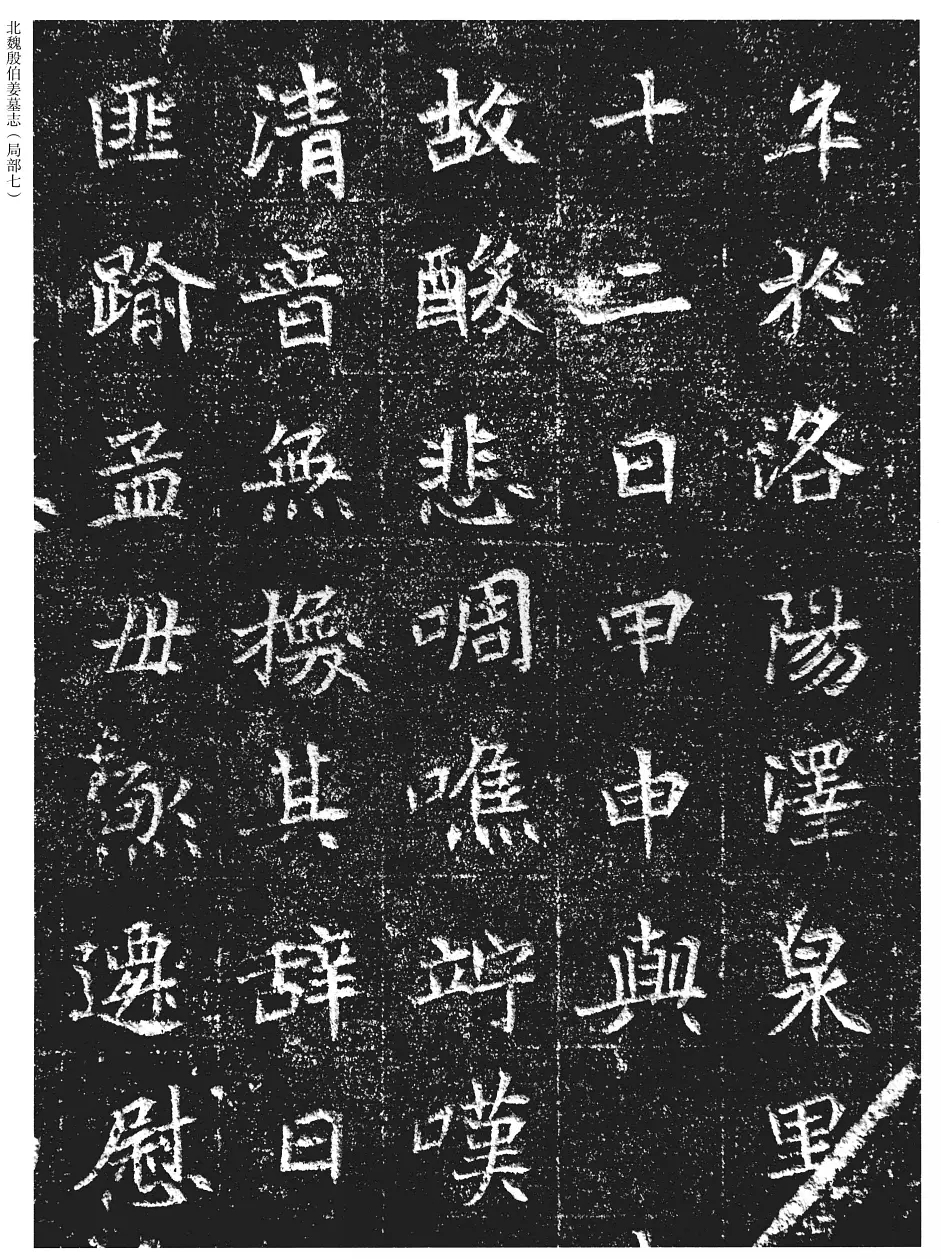 北魏殷伯姜墓志（局部七）
卒於洛陽澤泉里
十二日甲申輿
故酸悲啁噍竚嘆
清音無其辭曰
匪踰孟母遷慰